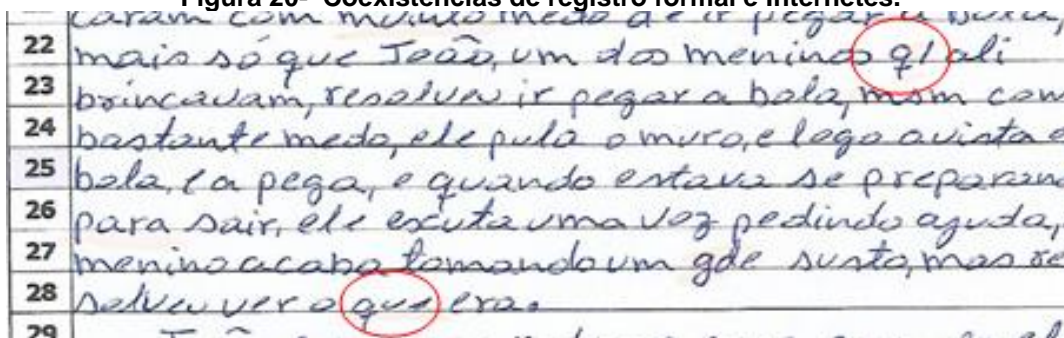 Figura 20- Coexistências de registro formal e internetês.
caram com muinto medo de ir pegar a bola,
22 mais só que João, um dos meninos q/ ali
23 brincavam, resolveu ir pegar a bola, msm com
24 bastante medo, ele pula o muro, e logo avista a
25 bola, e a pega, e quando estava se preparan
26 para sair, ele escuta uma voz pedindo ajuda,
27 menino acaba tomando um gde susto, mas re
28 solveu ver o que era.
29